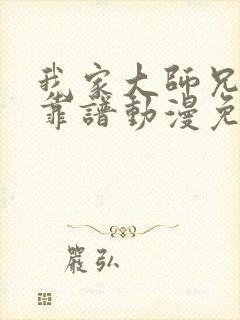 我家大師兄
靠譜動漫免
嚴弘